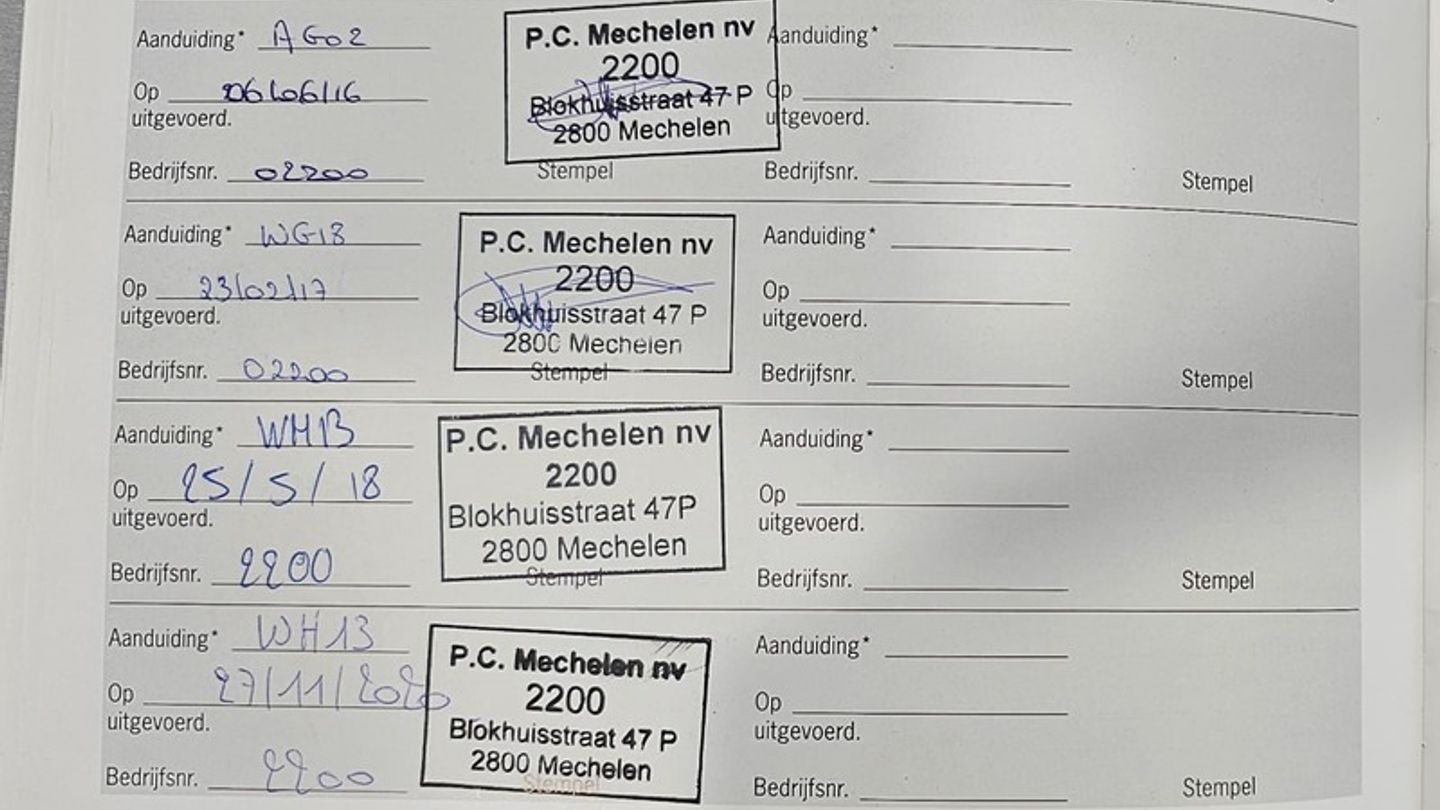 Aanduiding* AG02
Op 06/06/16
uitgevoerd.
Bedrijfsnr. 02200
P.C. Mechelen nv
2200
Blokhuisstraat 47 P
2800 Mechelen
Stempel
Aanduiding*
Op
uitgevoerd.
Bedrijfsnr.
Stempel
Aanduiding* WG18
Op 23/02/17
uitgevoerd.
Bedrijfsnr. 02200
P.C. Mechelen nv
2200
Blokhuisstraat 47 P
2800 Mechelen
Stempel
Aanduiding*
Op
uitgevoerd.
Bedrijfsnr.
Stempel
Aanduiding* WH13
Op 25/5/18
uitgevoerd.
Bedrijfsnr. 2200
P.C. Mechelen nv
2200
Blokhuisstraat 47P
2800 Mechelen
Stempel
Aanduiding*
Op
uitgevoerd.
Bedrijfsnr.
Stempel
Aanduiding* WH13
Op 27/11/2020
uitgevoerd.
Bedrijfsnr. 2200
P.C. Mechelen nv
2200
Blokhuisstraat 47 P
2800 Mechelen
Stempel
Aanduiding*
Op
uitgevoerd.
Bedrijfsnr.
Stempel